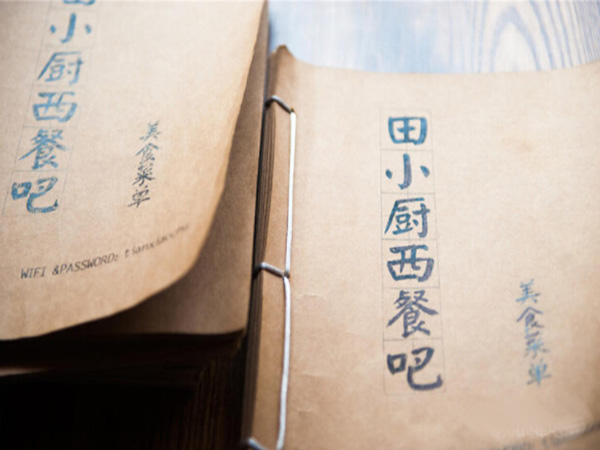 田小厨西餐吧
美食菜单
WIFI &PASSWORD: tianxiaochu
田小厨西餐吧
美食菜单